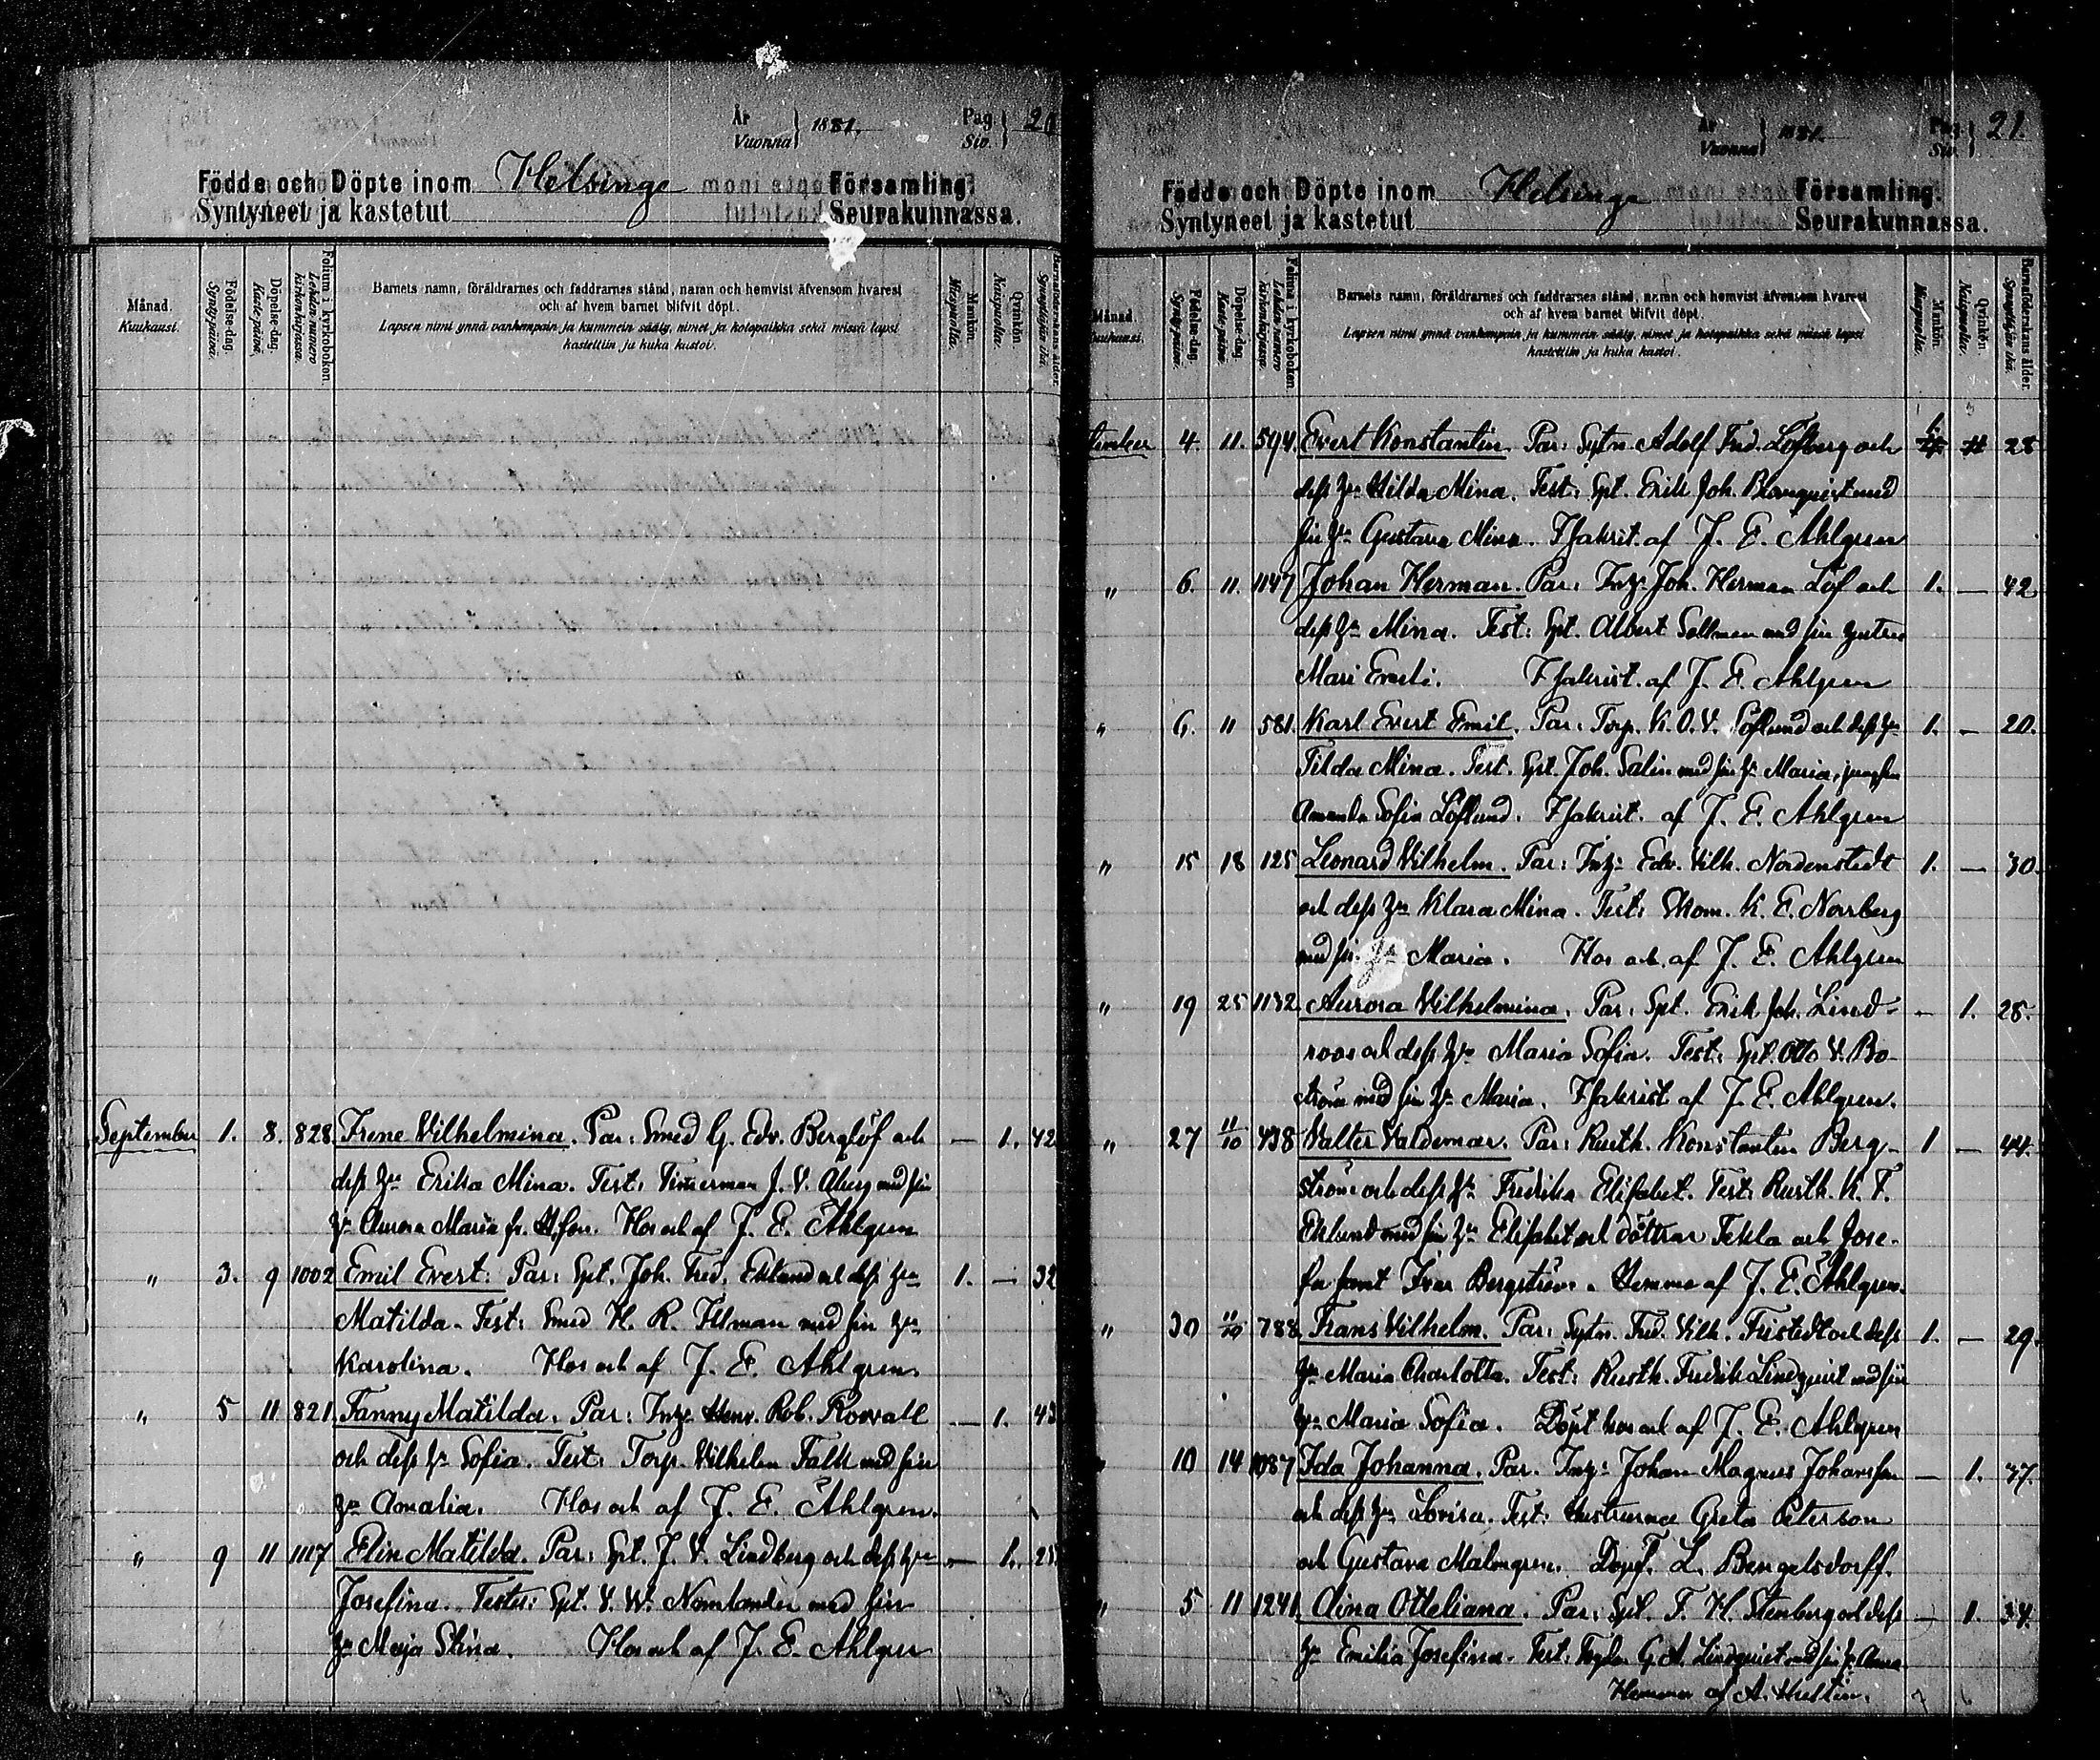 År
Vuonna } 1881. Pag. Siv. } 20
Födde och Döpte inom Helsinge Församling.
Syntyneet ja kastetut Seurakunnassa.
Månad. Kuukausi.
Födelse-dag. Synty-päivä.
Döpelse-dag. Kaste-päivä.
Folium i kyrkoboken. Lehden numero kirkonkirjassa.
Barnets namn, föräldrarnes och faddrarnes stånd, namn och hemvist äfvensom hvarest
och af hvem barnet blifvit döpt.
Lapsen nimi ynnä vanhempain ja kummein sääty, nimet ja kotopaikka sekä missä lapsi
kastettiin ja kuka kastoi.
Mankön. Miespuolia.
Qvinkön. Naispuolia.
Barnaföderskans ålder. Synnyttäjän ikä.
September 1. 8. 828 Irene Vilhelmina. Par: Smed G. Edv. Berglöf och — 1. 42
dess hu Erika Mina. Test: Timerman J. V. Åberg med sin
hu Aurora Maria fr. H.fors. Hos och af J. E. Ahlgren
" 3. 9 1002 Emil Evert. Par: Spt. Joh. Fred. Eklund och dess hu 1. — 32
Matilda. Test: Smed K. R. Illman med sin hu
Karolina. Hos och af J. E. Ahlgren
" 5 11 821 Fanny Matilda. Par: Inhys Henr. Rob. Rosvall — 1. 43
och dess hu Sofia. Test: Torp. Vilhelm Falk med sin
hu Amalia. Hos och af J. E. Ahlgren.
" 9 11 1117 Elin Matilda. Par: Spt. J. V. Lindberg och dess hu — 1. 25
Josefina. Testes: Spt. V. W. Nomlander med sin
hu Maja Stina. Hos och af J. E. Ahlgren
År
Vuonna } 1881. Pag. Siv. } 21.
Födde och Döpte inom Helsinge Församling.
Syntyneet ja kastetut Seurakunnassa.
Månad. Kuukausi.
Födelse-dag. Synty-päivä.
Döpelse-dag. Kaste-päivä.
Folium i kyrkoboken. Lehden numero kirkonkirjassa.
Barnets namn, föräldrarnes och faddrarnes stånd, namn och hemvist äfvensom hvarest
och af hvem barnet blifvit döpt.
Lapsen nimi ynnä vanhempain ja kummein sääty, nimet ja kotopaikka sekä missä lapsi
kastettiin ja kuka kastoi.
Mankön. Miespuolia.
Qvinkön. Naispuolia.
Barnaföderskans ålder. Synnyttäjän ikä.
tember 4. 11. 594. Evert Konstantin. Par: Sytn. Adolf Fred. Löfberg och 28
dess hu Hilda Mina. Test: Spt. Erik Joh. Blomquist med
sin hu Gustava Mina. I sakrist. af J. E. Ahlgren
" 6. 11. 1147 Johan Herman. Par: Inhys Joh. Herman Löf och 1. — 42
dess hu Mina. Test: Spt. Albert Sallman med sin hustru
Mari Emeli. I sakrist. af J. E. Ahlgren
" 6. 11 581. Karl Evert Emil. Par: Torp. K. O. V. Löflund och dess hu 1. — 20.
Tilda Mina. Test. Spt. Joh. Salin med sin hu Maria, jungfru
Amanda Sofia Löflund. I sakrist. af J. E. Ahlgren
" 15 18 125 Leonard Vilhelm. Par: Inhys Edv. Vilh. Nordenstedt 1. — 30.
och dess hu Klara Mina. Test: Skom. K. E. Norrberg
med sin hu Maria. Hos och af J. E. Ahlgren
" 19 25 1132 Aurora Vilhelmina. Par: Spt. Erik Joh. Lind- — 1. 28.
roos och dess hu Maria Sofia. Test: Spt. Otto V. Bo-
ström med sin hu Maria. I sakrist af J. E. Ahlgren.
" 27 11/10 438 Valter Valdemar. Par: Rusth. Konstantin Berg- 1 — 44.
ström och dess hu Fredrika Elisabet. Test: Rusth. K. F.
Eklund med sin hu Elisabet och döttrar Tekla och Jose-
fa samt Ivar Bergström. Hemma af J. E. Ahlgren.
" 30 11/10 788 Frans Vilhelm. Par: Sytn. Fred. Vilh. Fristedt och dess 1. — 29.
hu Maria Charlotta. Test: Rusth. Fredrik Lindquist med sin
hu Maria Sofia. Döpt hos och af J. E. Ahlgren
" 10 14 1087 Ida Johanna. Par. Inhys Johan Magnus Johansson — 1. 37.
och dess hu Lovisa. Test: Hustrurna Greta Peterson
och Gustava Malmgren. Döpt. L. Bengelsdorff.
" 5 11 1241 Aina Otteliana. Par: Spt. F. H. Stenberg och dess — 1. 34.
hu Emilia Josefina. Test: G. A. Lindquist med sin hu Anna
Hemma af A. Hultin.